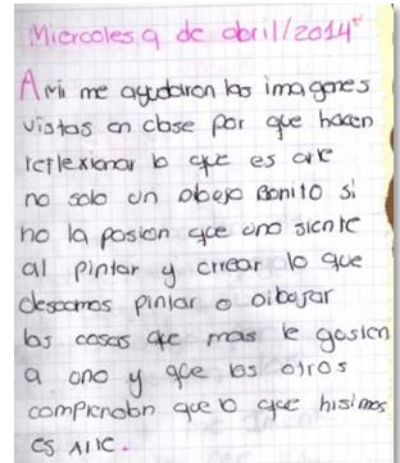 Miercoles 9 de abril/2014
A mi me ayudaron las imagenes
vistas en clase por que hacen
reflexionar lo que es arte
no solo un obejo Bonito si
no la pasion que uno siente
al pintar y crear lo que
deseamos pintar o dibujar
las cosas que mas le gusten
a uno y que los otros
comprendan que lo que hisimos
es Arte.